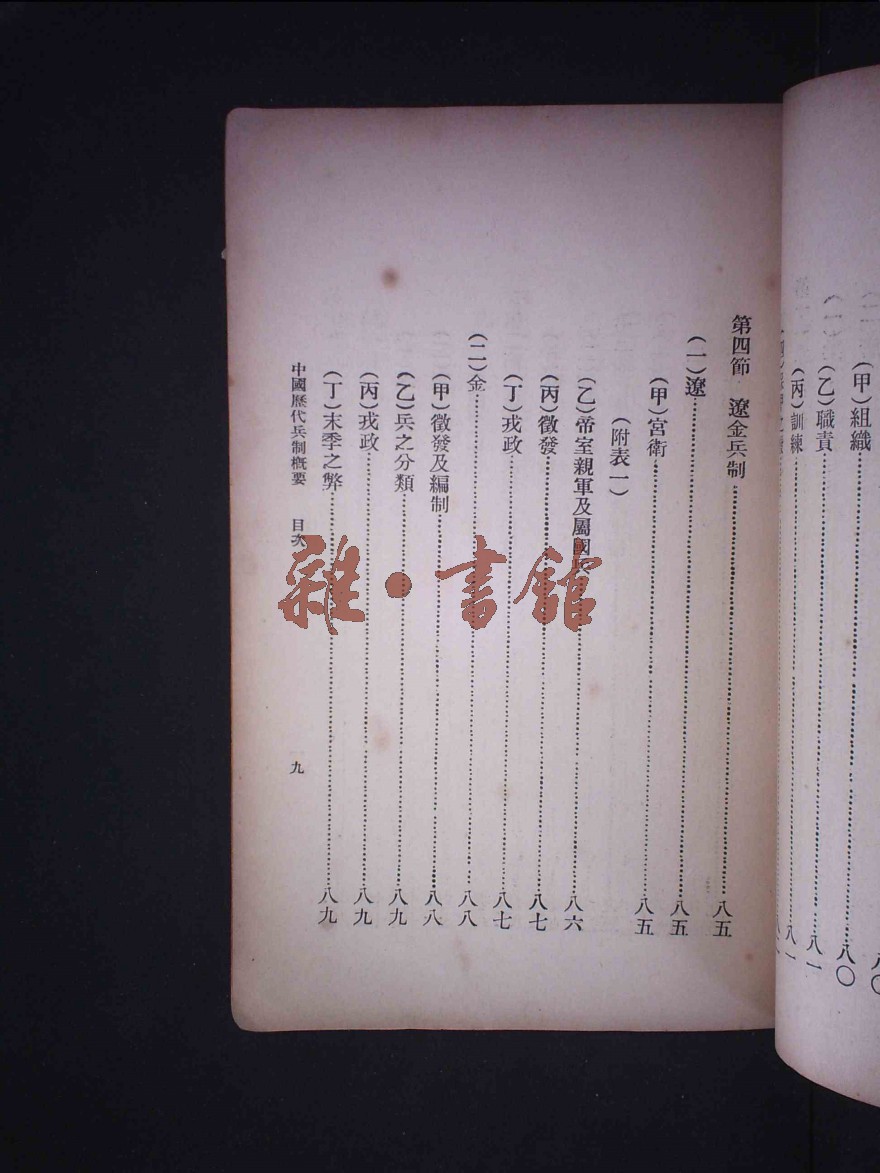 (甲)組織 八〇
(乙)職責 八一
(丙)訓練 八一
第四節 遼金兵制 八五
(一)遼 八五
(甲)宮衛 八五
(附表一)
(乙)帝室親軍及屬國 八六
(丙)徵發 八七
(丁)戎政 八七
(二)金 八八
(甲)徵發及編制 八八
(乙)兵之分類 八九
(丙)戎政 八九
(丁)末季之弊 八九
中國歷代兵制概要 目次 九
雜·書館